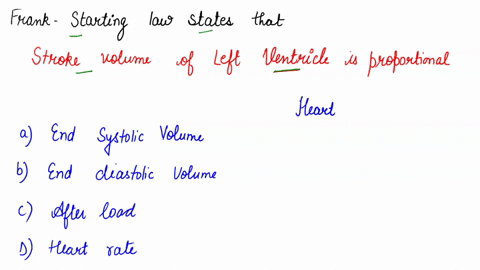 Frank- Starting law states that
Stroke volume of Left Ventricle is proportional
Heart
a) End Systolic Volume
b) End diastolic Volume
c) After load
D) Heart rate